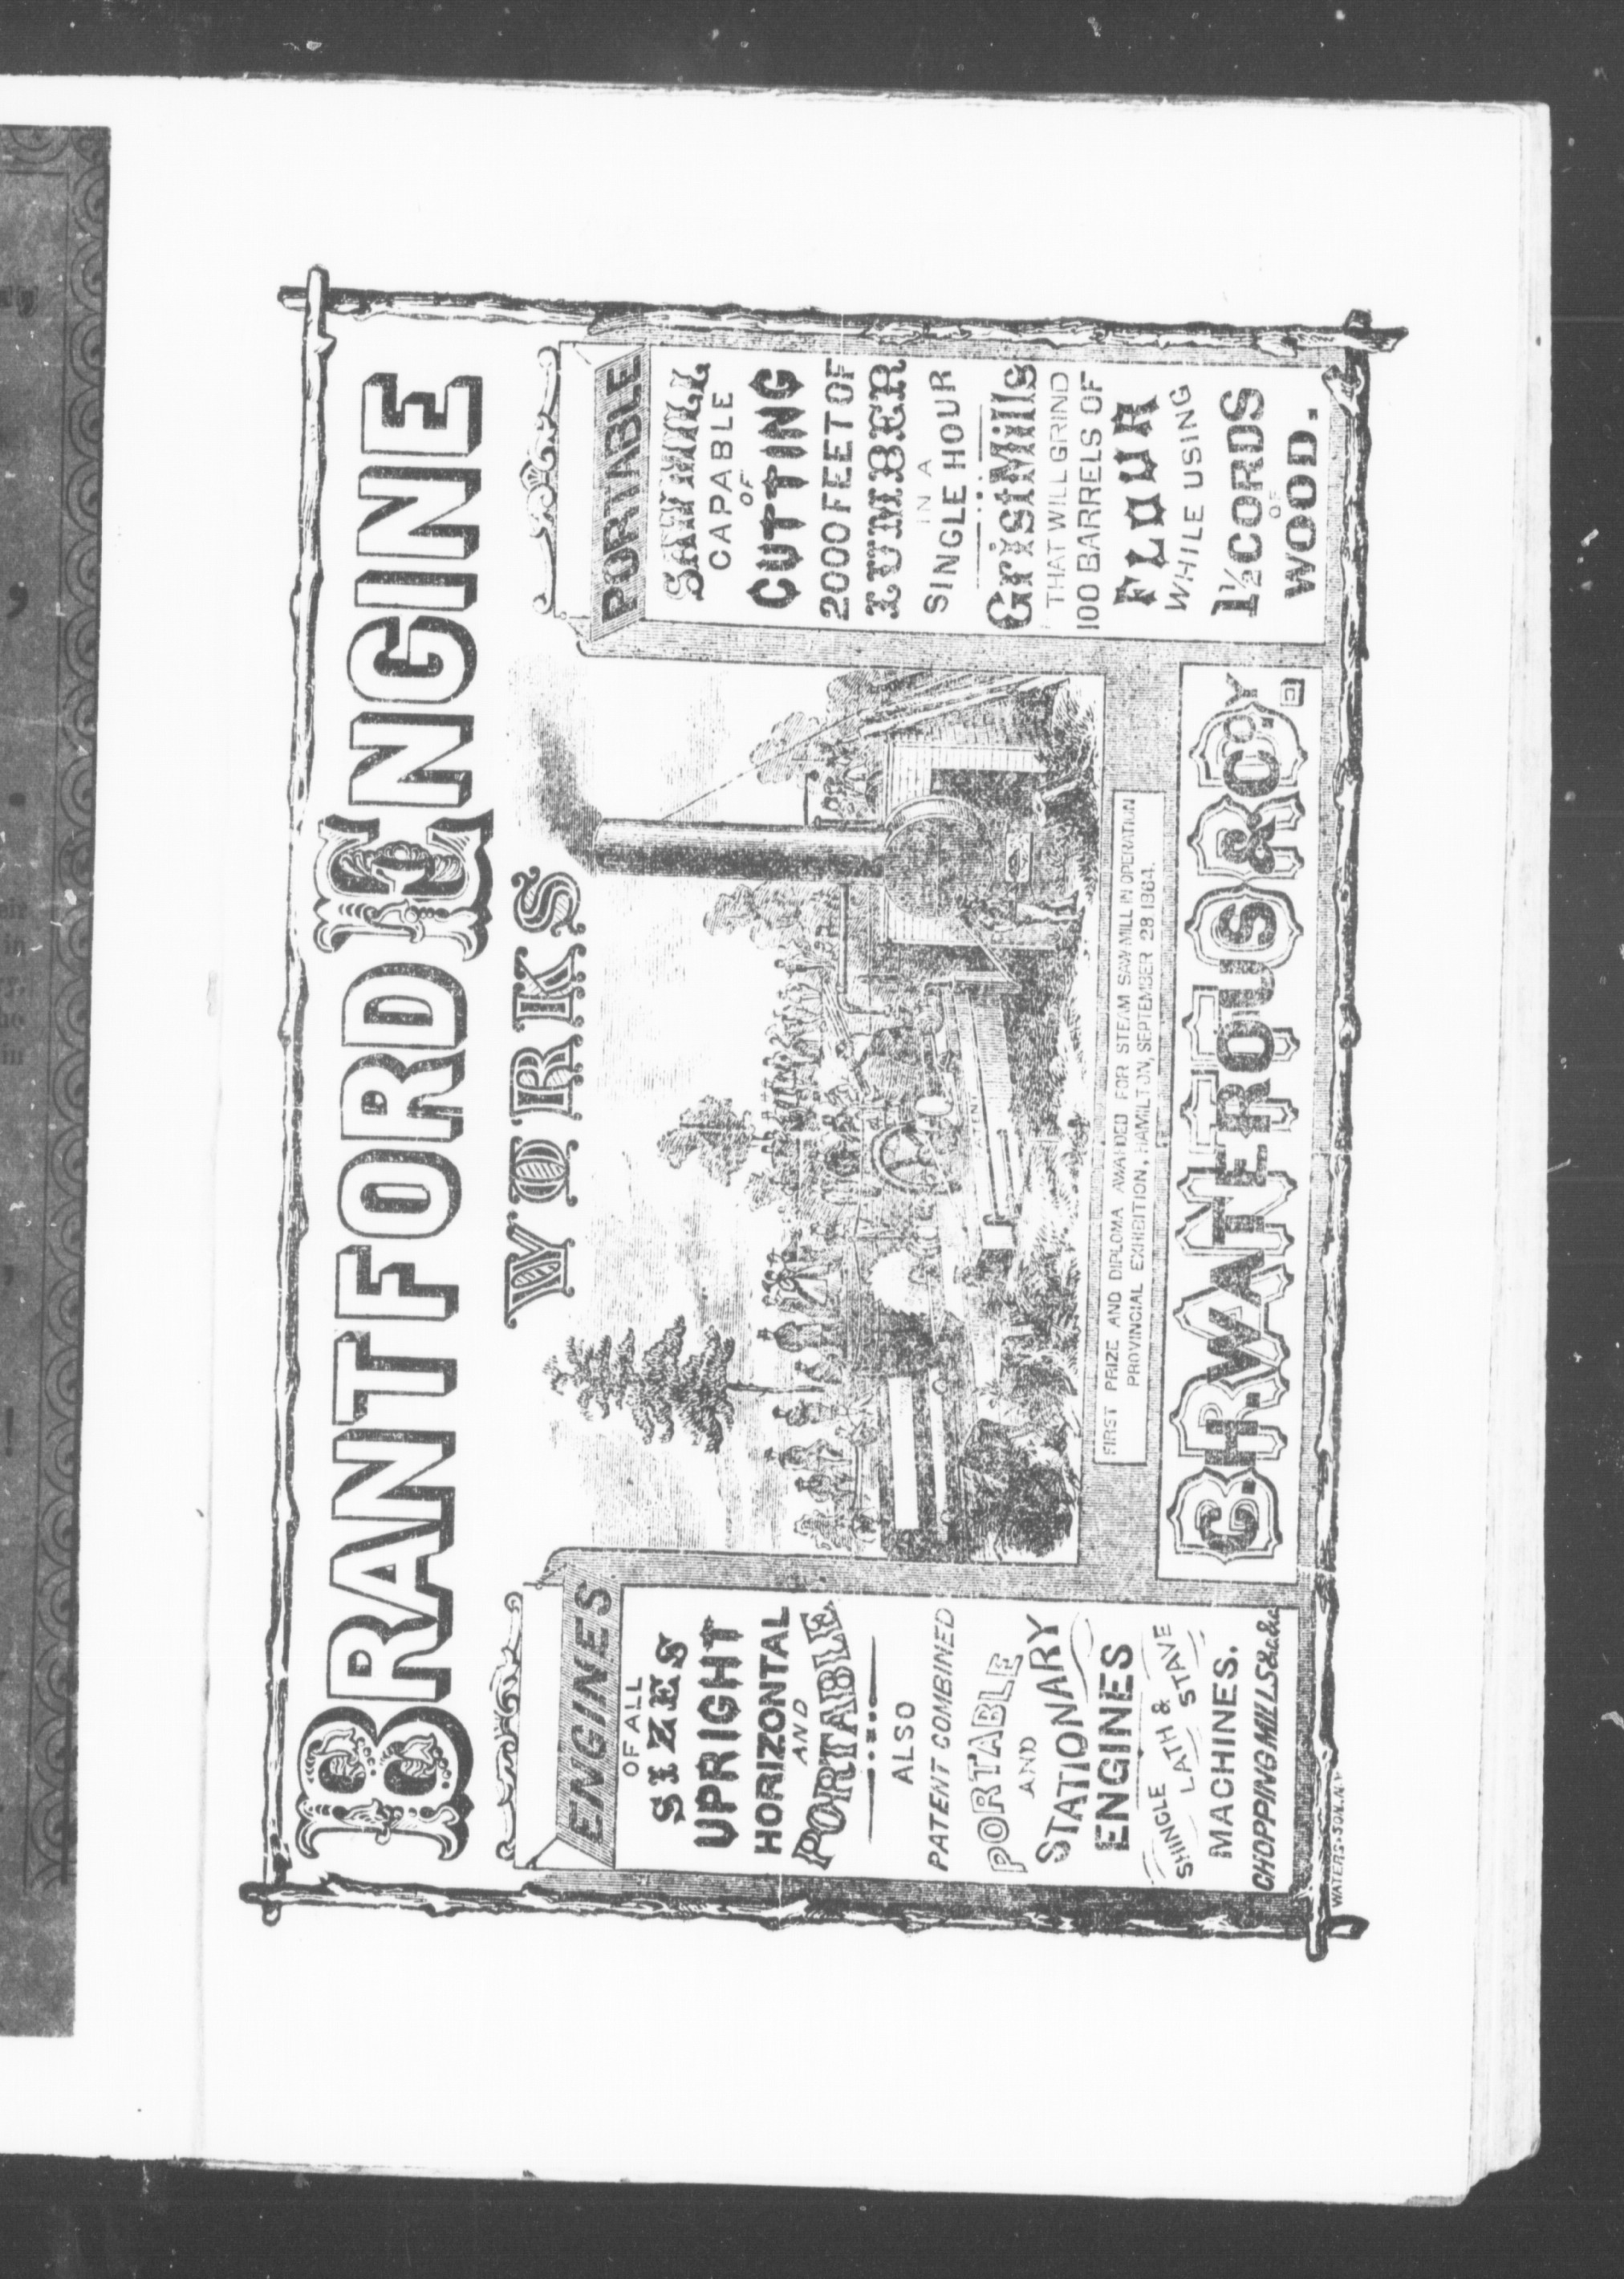 BRANTFORD ENGINE
WORKS
ENGINES
OF ALL
SIZES
UPRIGHT
HORIZONTAL
AND
PORTABLE
ALSO
PATENT COMBINED
PORTABLE
AND
STATIONARY
ENGINES
SHINGLE LATH & STAVE
MACHINES.
CHOPPING MILLS &c. &c.
PATENT
FIRST PRIZE AND DIPLOMA AWARDED FOR STEAM SAW MILL IN OPERATION
PROVINCIAL EXHIBITION, HAMILTON, SEPTEMBER 28 1864.
C.H. WATEROUS & CO.Y
PORTABLE
SAWMILL
CAPABLE
OF
CUTTING
2000 FEET OF
LUMBER
IN A
SINGLE HOUR
GristMills
THAT WILL GRIND
100 BARRELS OF
FLOUR
WHILE USING
1½ CORDS
OF
WOOD.
WATERS & SON. N.Y.